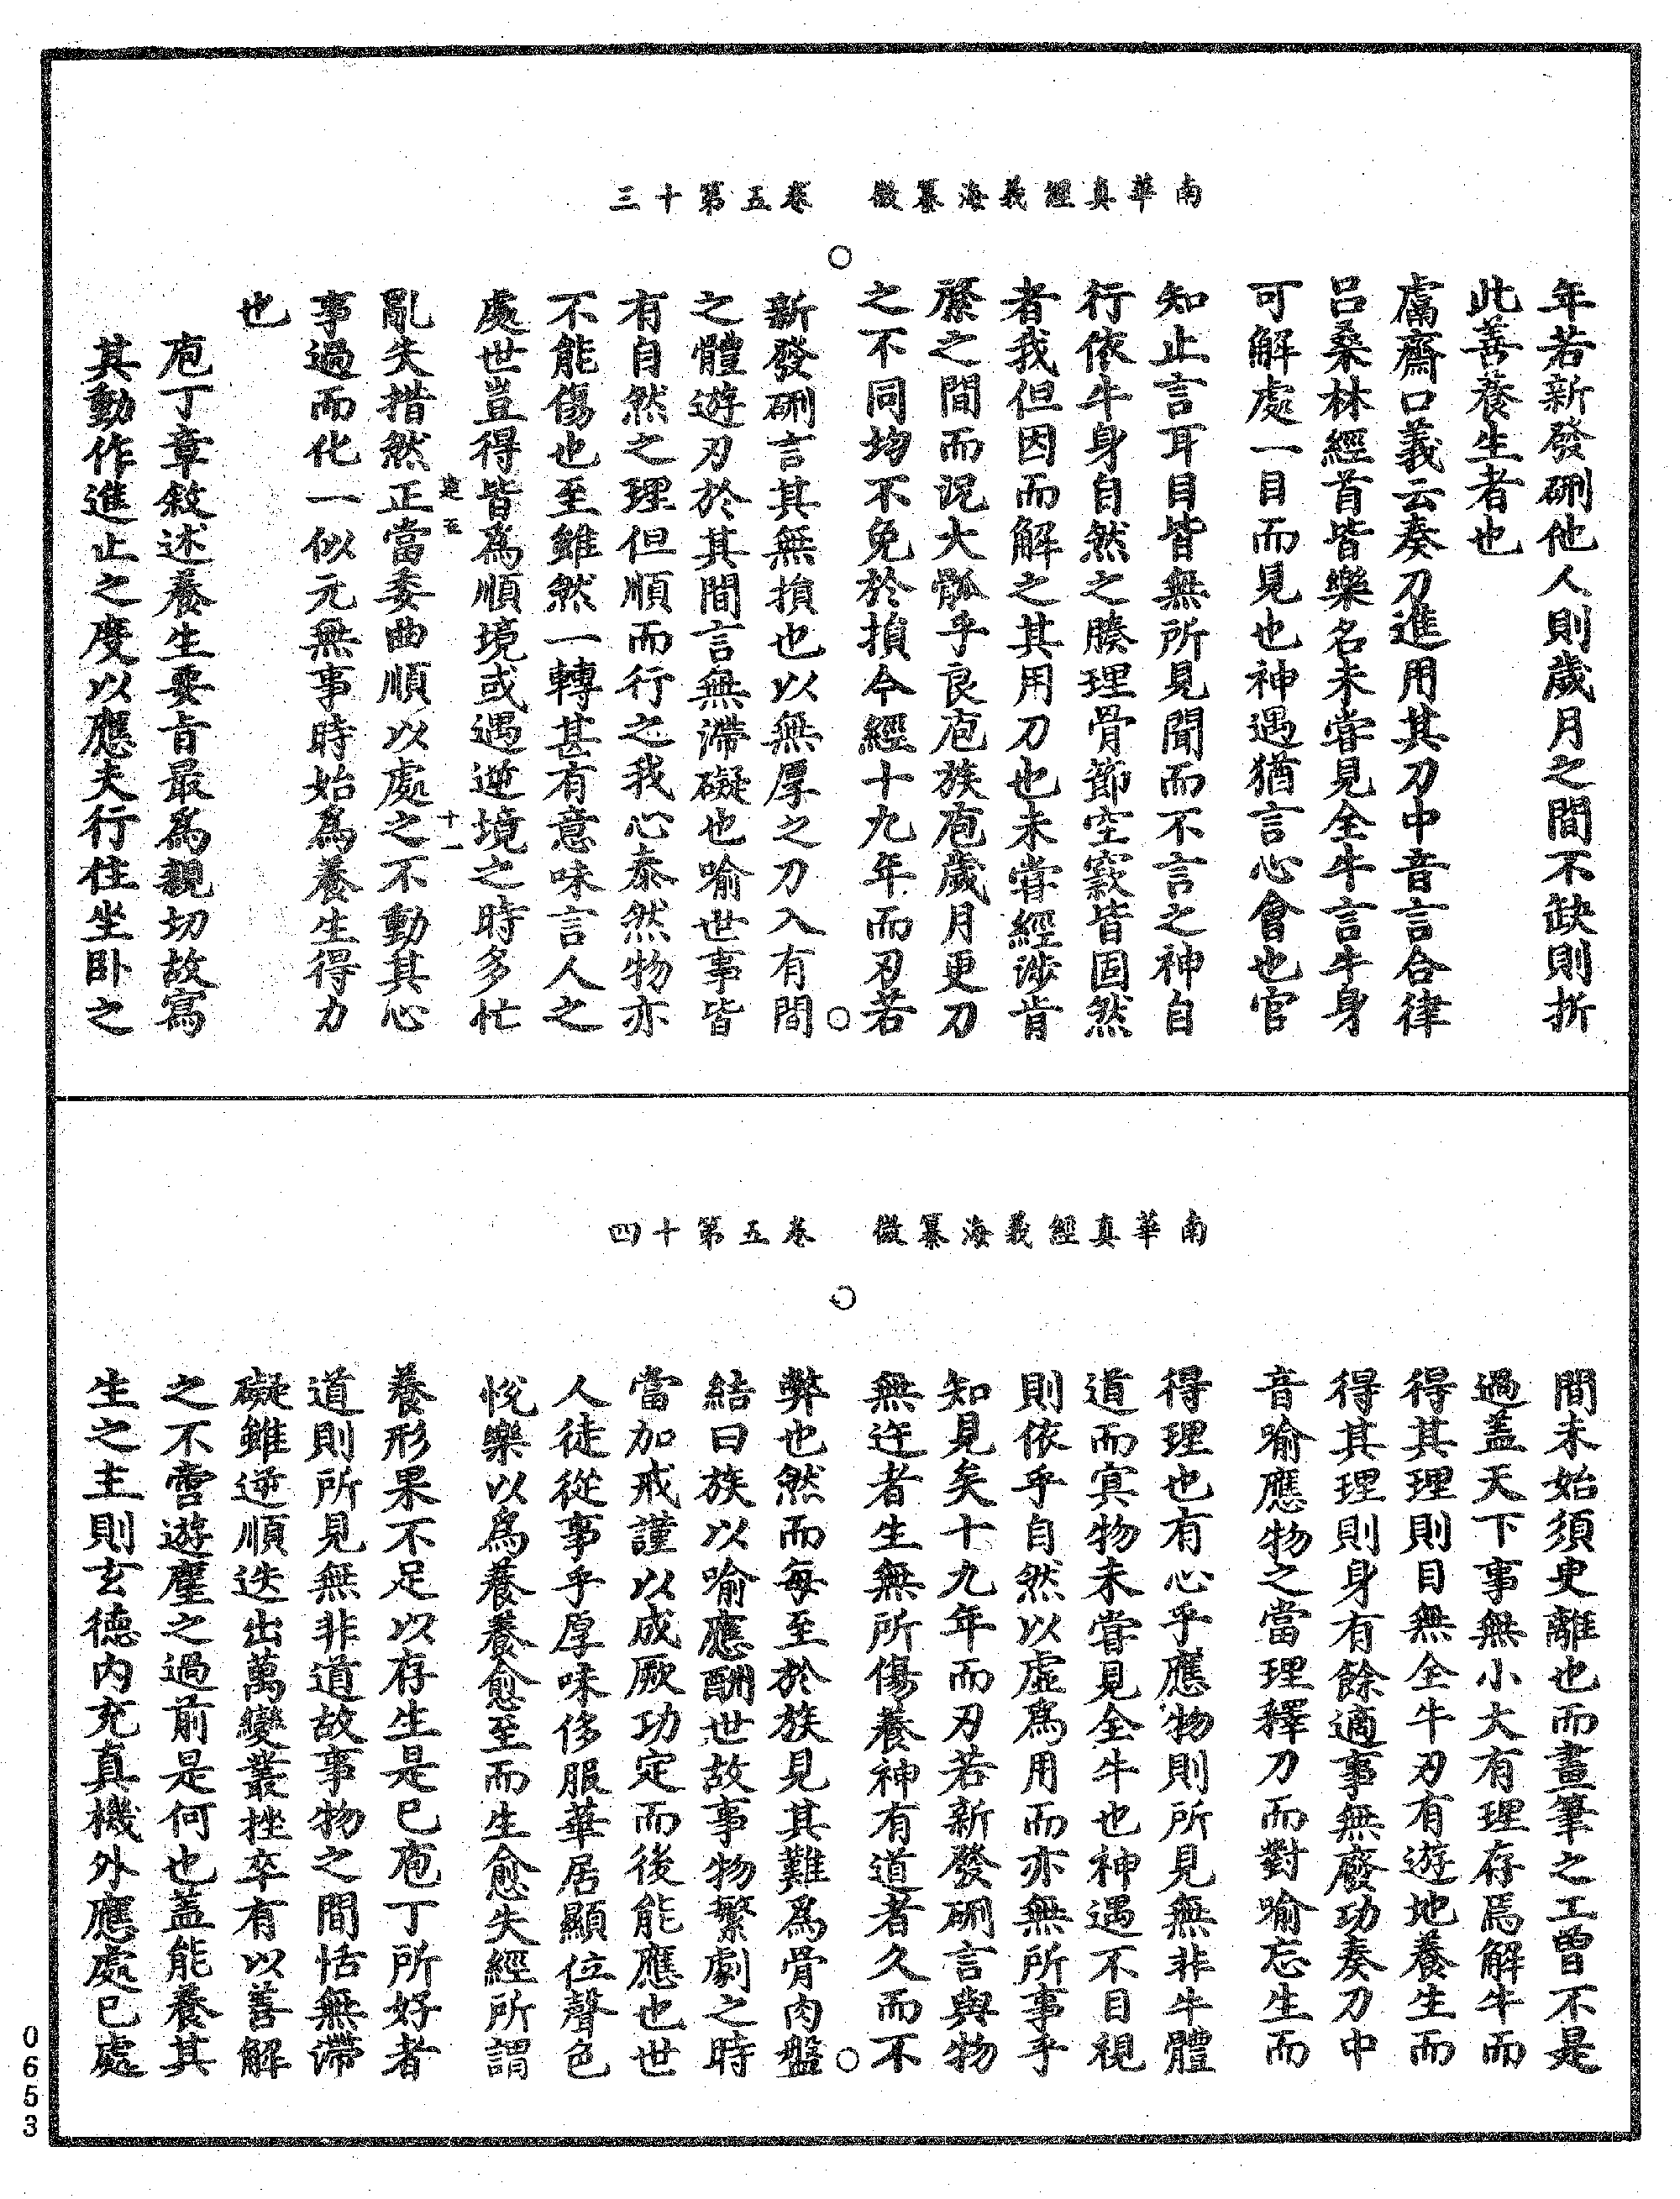 南華真經義海纂微　卷五第十三
年若新發硎他人則歲月之間不缺則折
此善養生者也
鬳齋口義云奏刀進用其刀中音言合律
呂桑林經首皆樂名未甞見全牛言牛身
可解處一目而見也神遇猶言心會也官
知止言耳目皆無所見聞而不言之神自
行依牛身自然之腠理骨節空竅皆固然
者我但因而解之其用刀也未甞經涉肯
綮之間而況大軱乎良庖族庖歲月更刀
之不同均不免於損今經十九年而刃若
新發硎言其無損也以無厚之刀入有間
之體遊刃於其間言無滯礙也喻世事皆
有自然之理但順而行之我心泰然物亦
不能傷也至雖然一轉甚有意味言人之
處世豈得皆為順境或遇逆境之時多忙
亂失措然正當委曲順以處之不動其心
事過而化一似元無事時始為養生得力
也
庖丁章敘述養生要旨最為親切故寫
其動作進止之度以應夫行住坐卧之
南華真經義海纂微　卷五第十四
間未始須臾離也而畫筆之工曽不是
過盖天下事無小大有理存焉解牛而
得其理則目無全牛刃有遊地養生而
得其理則身有餘適事無廢功奏刀中
音喻應物之當理釋刀而對喻忘生而
得理也有心乎應物則所見無非牛體
道而冥物未甞見全牛也神遇不目視
則依乎自然以虛為用而亦無所事乎
知見矣十九年而刃若新發硎言與物
無迕者生無所傷養神有道者久而不
弊也然而每至於族見其難為骨肉盤
結曰族以喻應酬世故事物繁劇之時
當加戒謹以成厥功定而後能應也世
人徒從事乎厚味侈服華居顯位聲色
悅樂以為養養愈至而生愈失經所謂
養形果不足以存生是已庖丁所好者
道則所見無非道故事物之間恬無滯
礙雖逆順迭出萬變叢挫卒有以善解
之不啻遊塵之過前是何也盖能養其
生之主則玄德內充真機外應處已處
0653